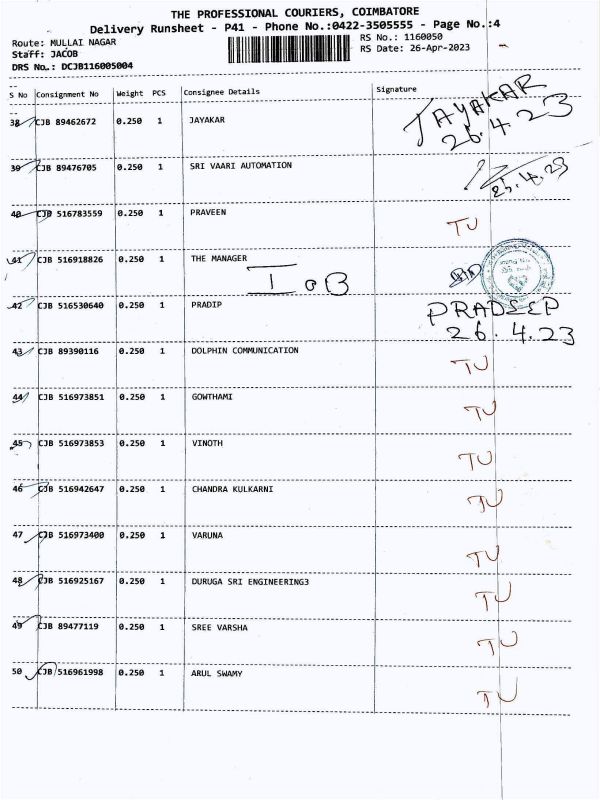 THE PROFESSIONAL COURIERS, COIMBATORE
Delivery Runsheet - P41 - Phone No.:0422-3505555 - Page No.:4
Route: MULLAI NAGAR RS No.: 1160050
Staff: JACOB RS Date: 26-Apr-2023
DRS No.: DCJB116005004
S No Consignment No Weight PCS Consignee Details Signature
38 CJB 89462672 0.250 1 JAYAKAR JAYAKAR
26.4.23
39 CJB 89476705 0.250 1 SRI VAARI AUTOMATION
25.4.23
40 CJB 516783559 0.250 1 PRAVEEN TU
41 CJB 516918826 0.250 1 THE MANAGER
IOB
42 CJB 516530640 0.250 1 PRADIP PRADEEP
26.4.23
43 CJB 89390116 0.250 1 DOLPHIN COMMUNICATION TU
44 CJB 516973851 0.250 1 GOWTHAMI TU
45 CJB 516973853 0.250 1 VINOTH TU
46 CJB 516942647 0.250 1 CHANDRA KULKARNI TU
47 CJB 516973400 0.250 1 VARUNA TU
48 CJB 516925167 0.250 1 DURUGA SRI ENGINEERING3 TU
49 CJB 89477119 0.250 1 SREE VARSHA TU
50 CJB 516961998 0.250 1 ARUL SWAMY TU